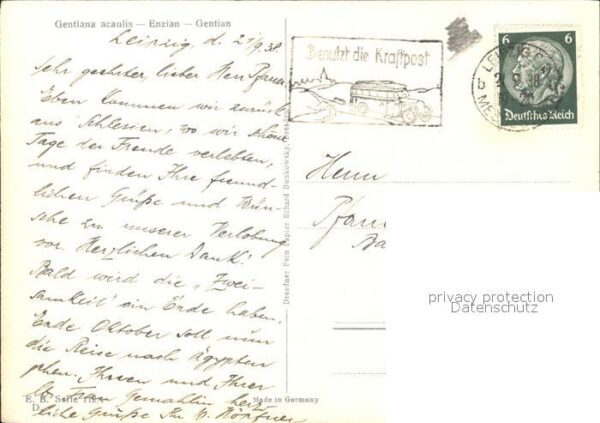 Gentiana acaulis — Enzian — Gentian
Leipzig, d. 21/9.38.
Sehr geehrter, lieber Herr
Eben kommen wir zurück
aus Schlesien, wo wir schöne
Tage der Freude verlebten,
und finden Ihre freund-
lichen Grüße und Wün-
sche zu unserer Verlobung
vor. Herzlichen Dank!
Bald wird die „Zwei-
samkeit" ein Ende haben.
Ende Oktober soll nun
die Reise nach Ägypten
gehen. Ihnen und Ihrer
lb. Frau Gemahlin herz-
liche Grüße Ihr
E. B. Serie
Made in Germany
Dresdner Fein Papier Erhard Bunkowsky, Dresden
Benutzt die Kraftpost
LEIPZIG
6 6
Deutsches Reich
Herrn
privacy protection
Datenschutz